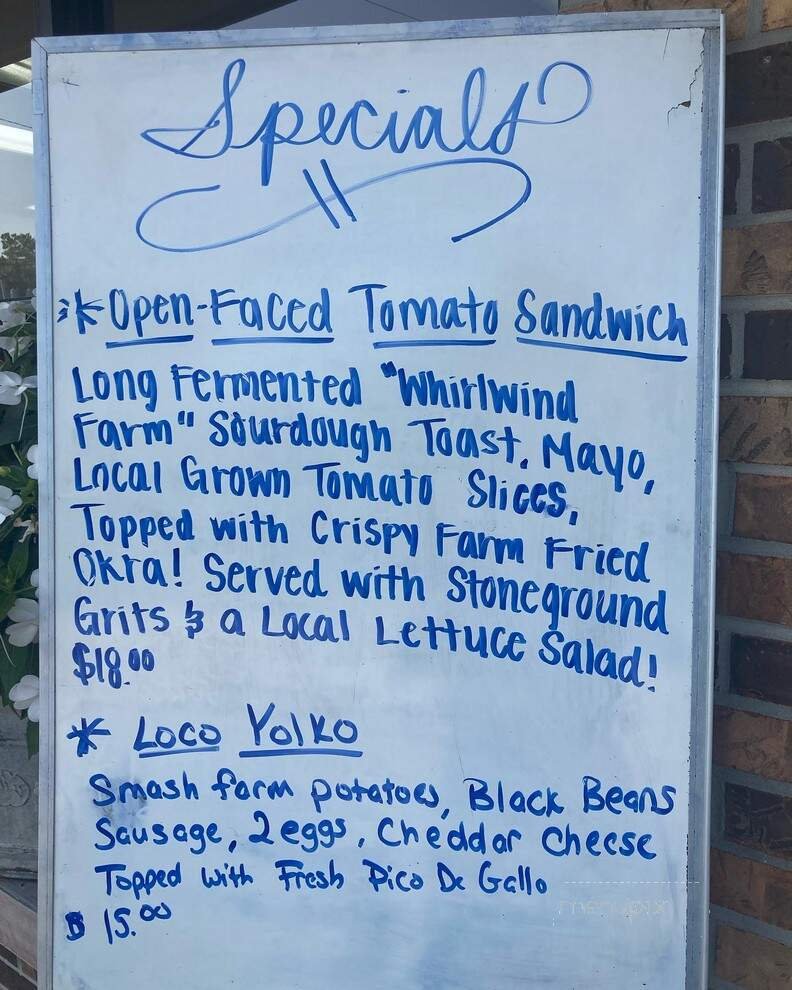 Specials
* Open-Faced Tomato Sandwich
Long Fermented "Whirlwind
Farm" Sourdough Toast, Mayo,
Local Grown Tomato Slices,
Topped with Crispy Farm Fried
Okra! Served with Stoneground
Grits & a Local Lettuce Salad!
$18.00
* Loco Yolko
Smash farm potatoes, Black Beans
Sausage, 2 eggs, Cheddar Cheese
Topped with Fresh Pico De Gallo
$ 15.00
menupix